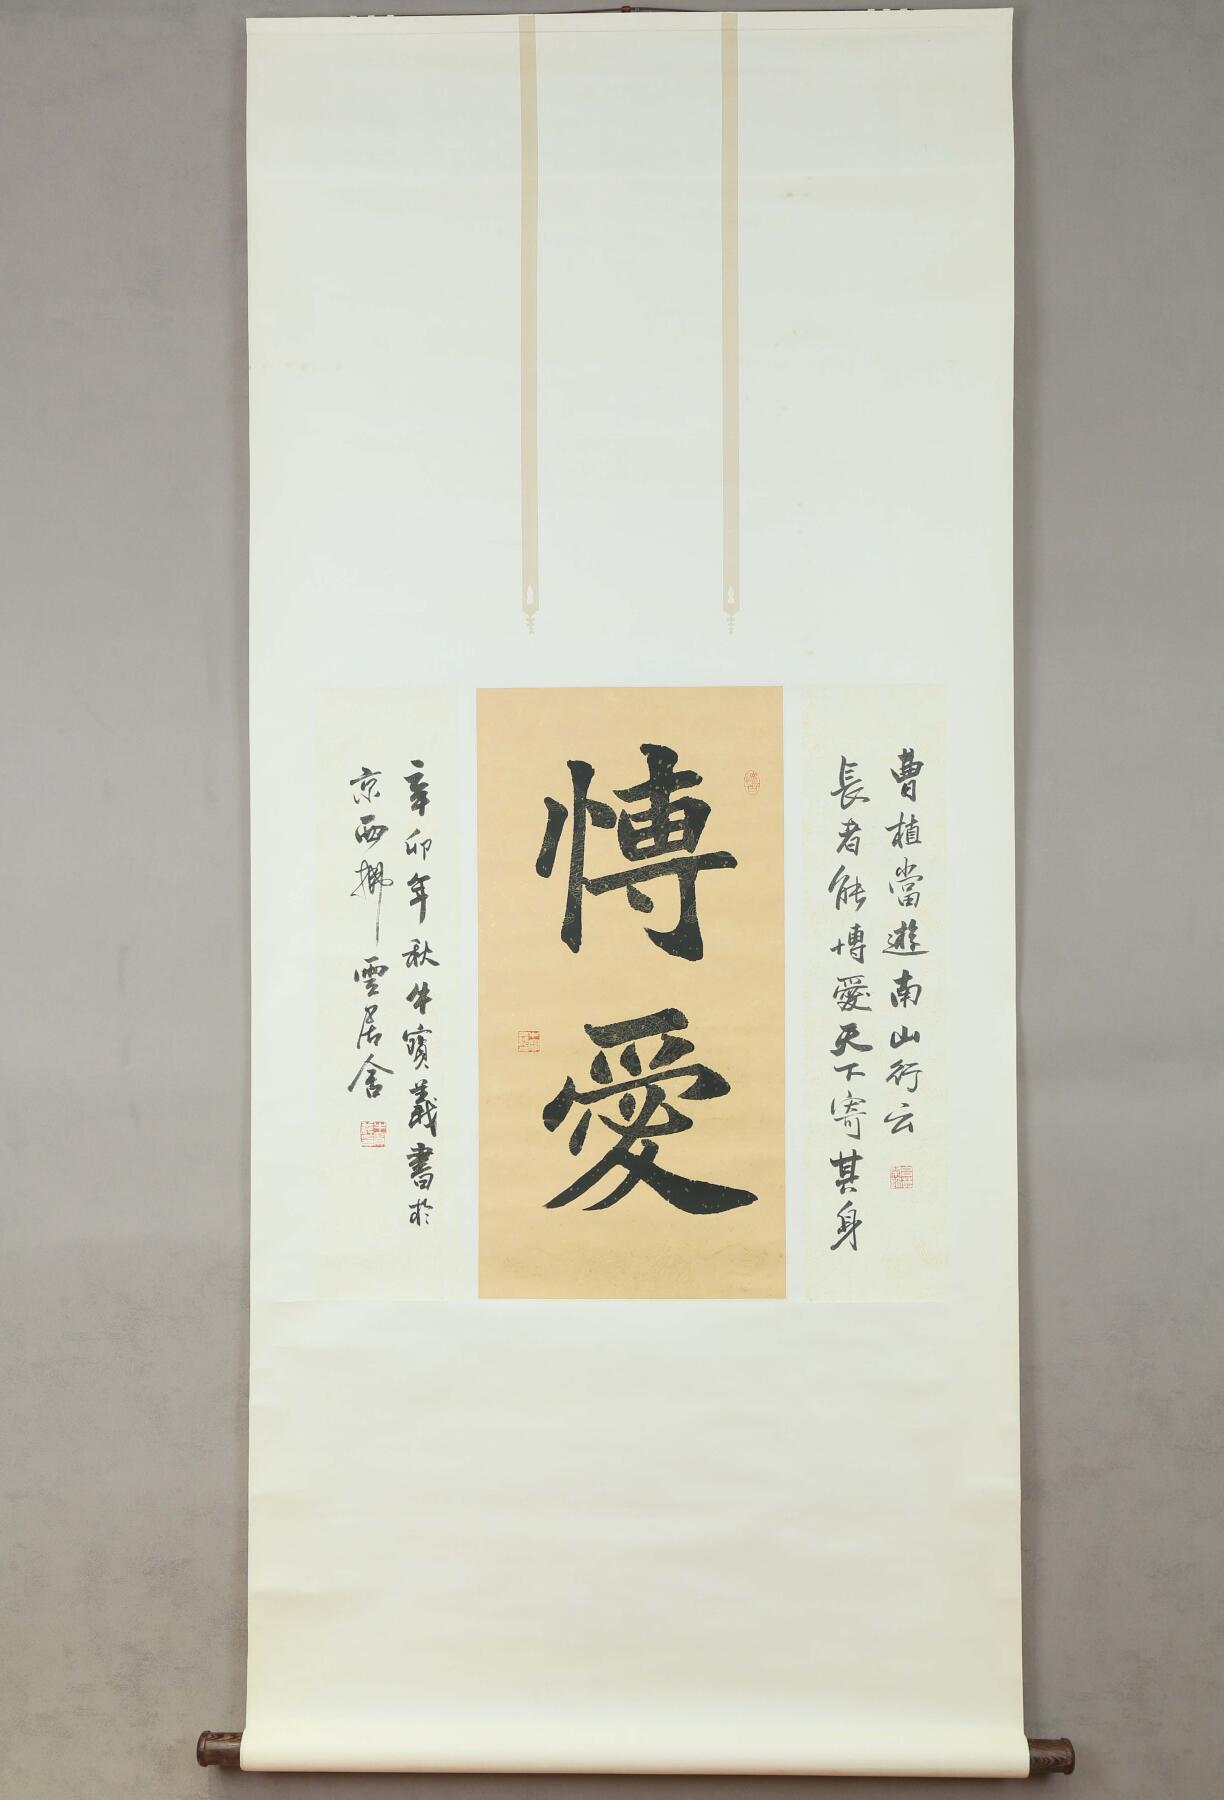 愽愛
曹植當遊南山行云
長者能博愛天下寄其身
辛卯年秋牛寶義書於
京西拂雲居舍